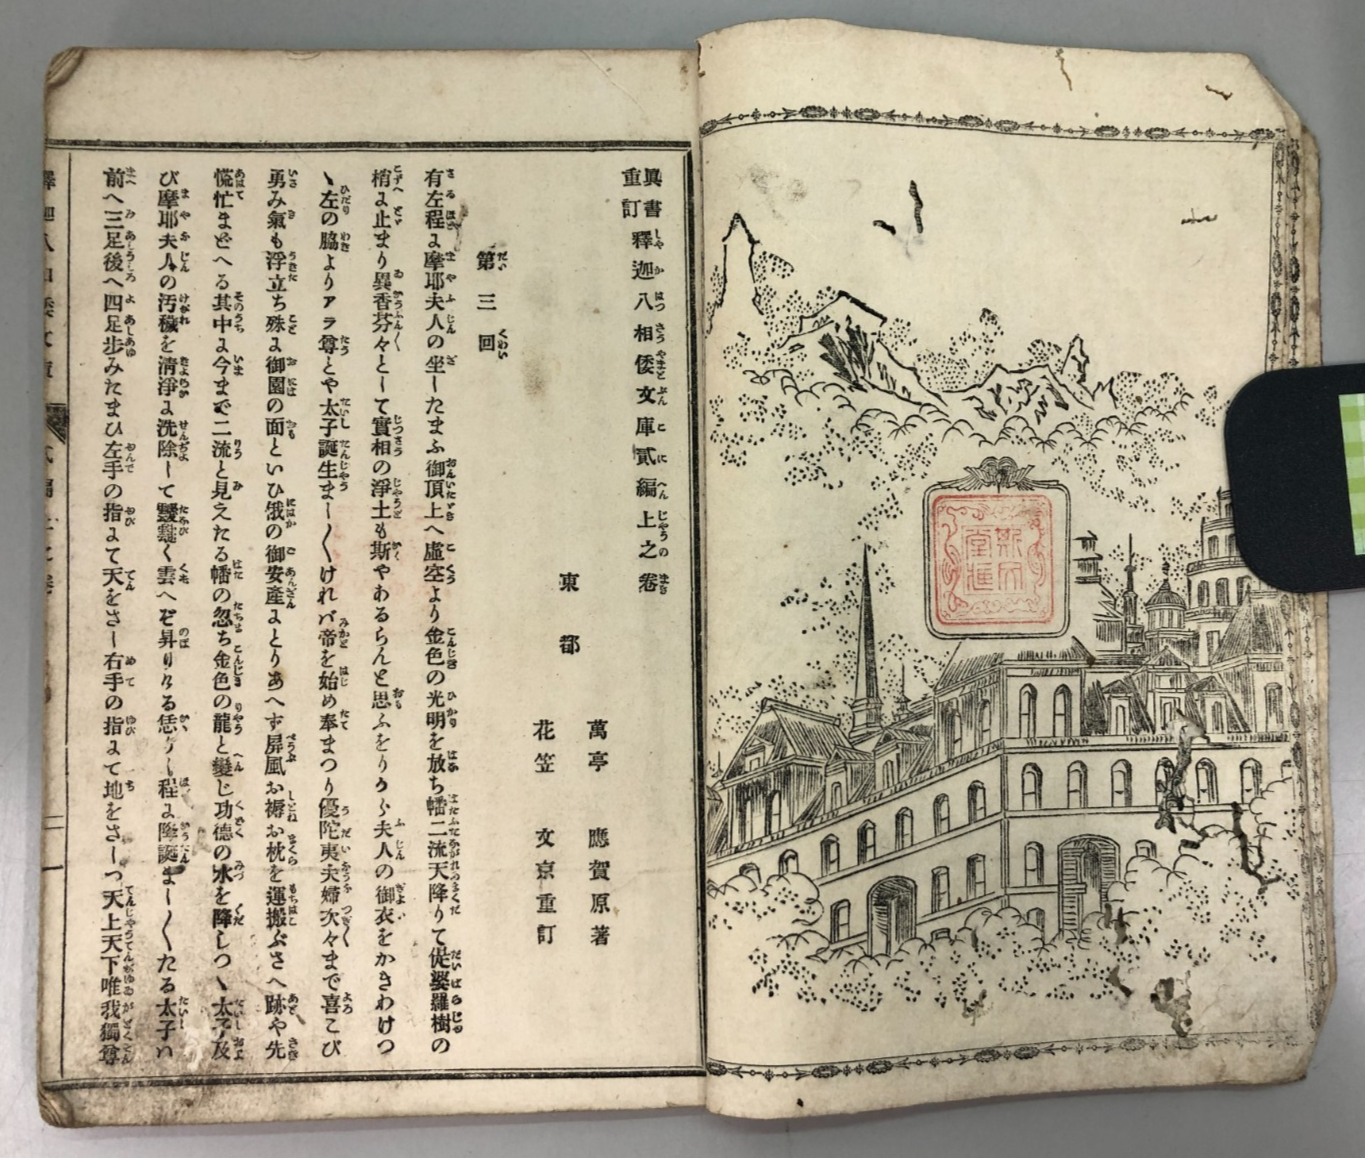 斯文
堂梓
異書
重訂
釋迦八相倭文庫貳編上之卷
東都
萬亭應賀原著
花笠文京重訂
第三回
有左程に摩耶夫人の坐ーたまふ御頂上へ虚空より金色の光明を放ち幡二流天降りて偍婆羅樹の
梢に止まり異香芬々とーて實相の淨土も斯やあるらんと思ふをりから夫人の御衣をかきわけつ
ヽ左の脇よりアラ尊とや太子誕生まー〳〵けれバ帝を始め奉まつり優陀夷夫婦次々まで喜こび
勇み氣も浮立ち殊に御園の面といひ俄の御安產にとりあへず屏風お褥お枕を運搬ぶさへ跡や先
慌忙まどへる其中に今まで二流と見えたる幡の忽ち金色の龍と變じ功德の水を降しつヽ太子及
び摩耶夫人の汚穢を清淨に洗除ーて靉靆く雲へぞ昇りける恁りー程に降誕まー〳〵たる太子ハ
前へ三足後へ四足步みたまひ左手の指にて天をさー右手の指にて地をさーつ天上天下唯我獨尊